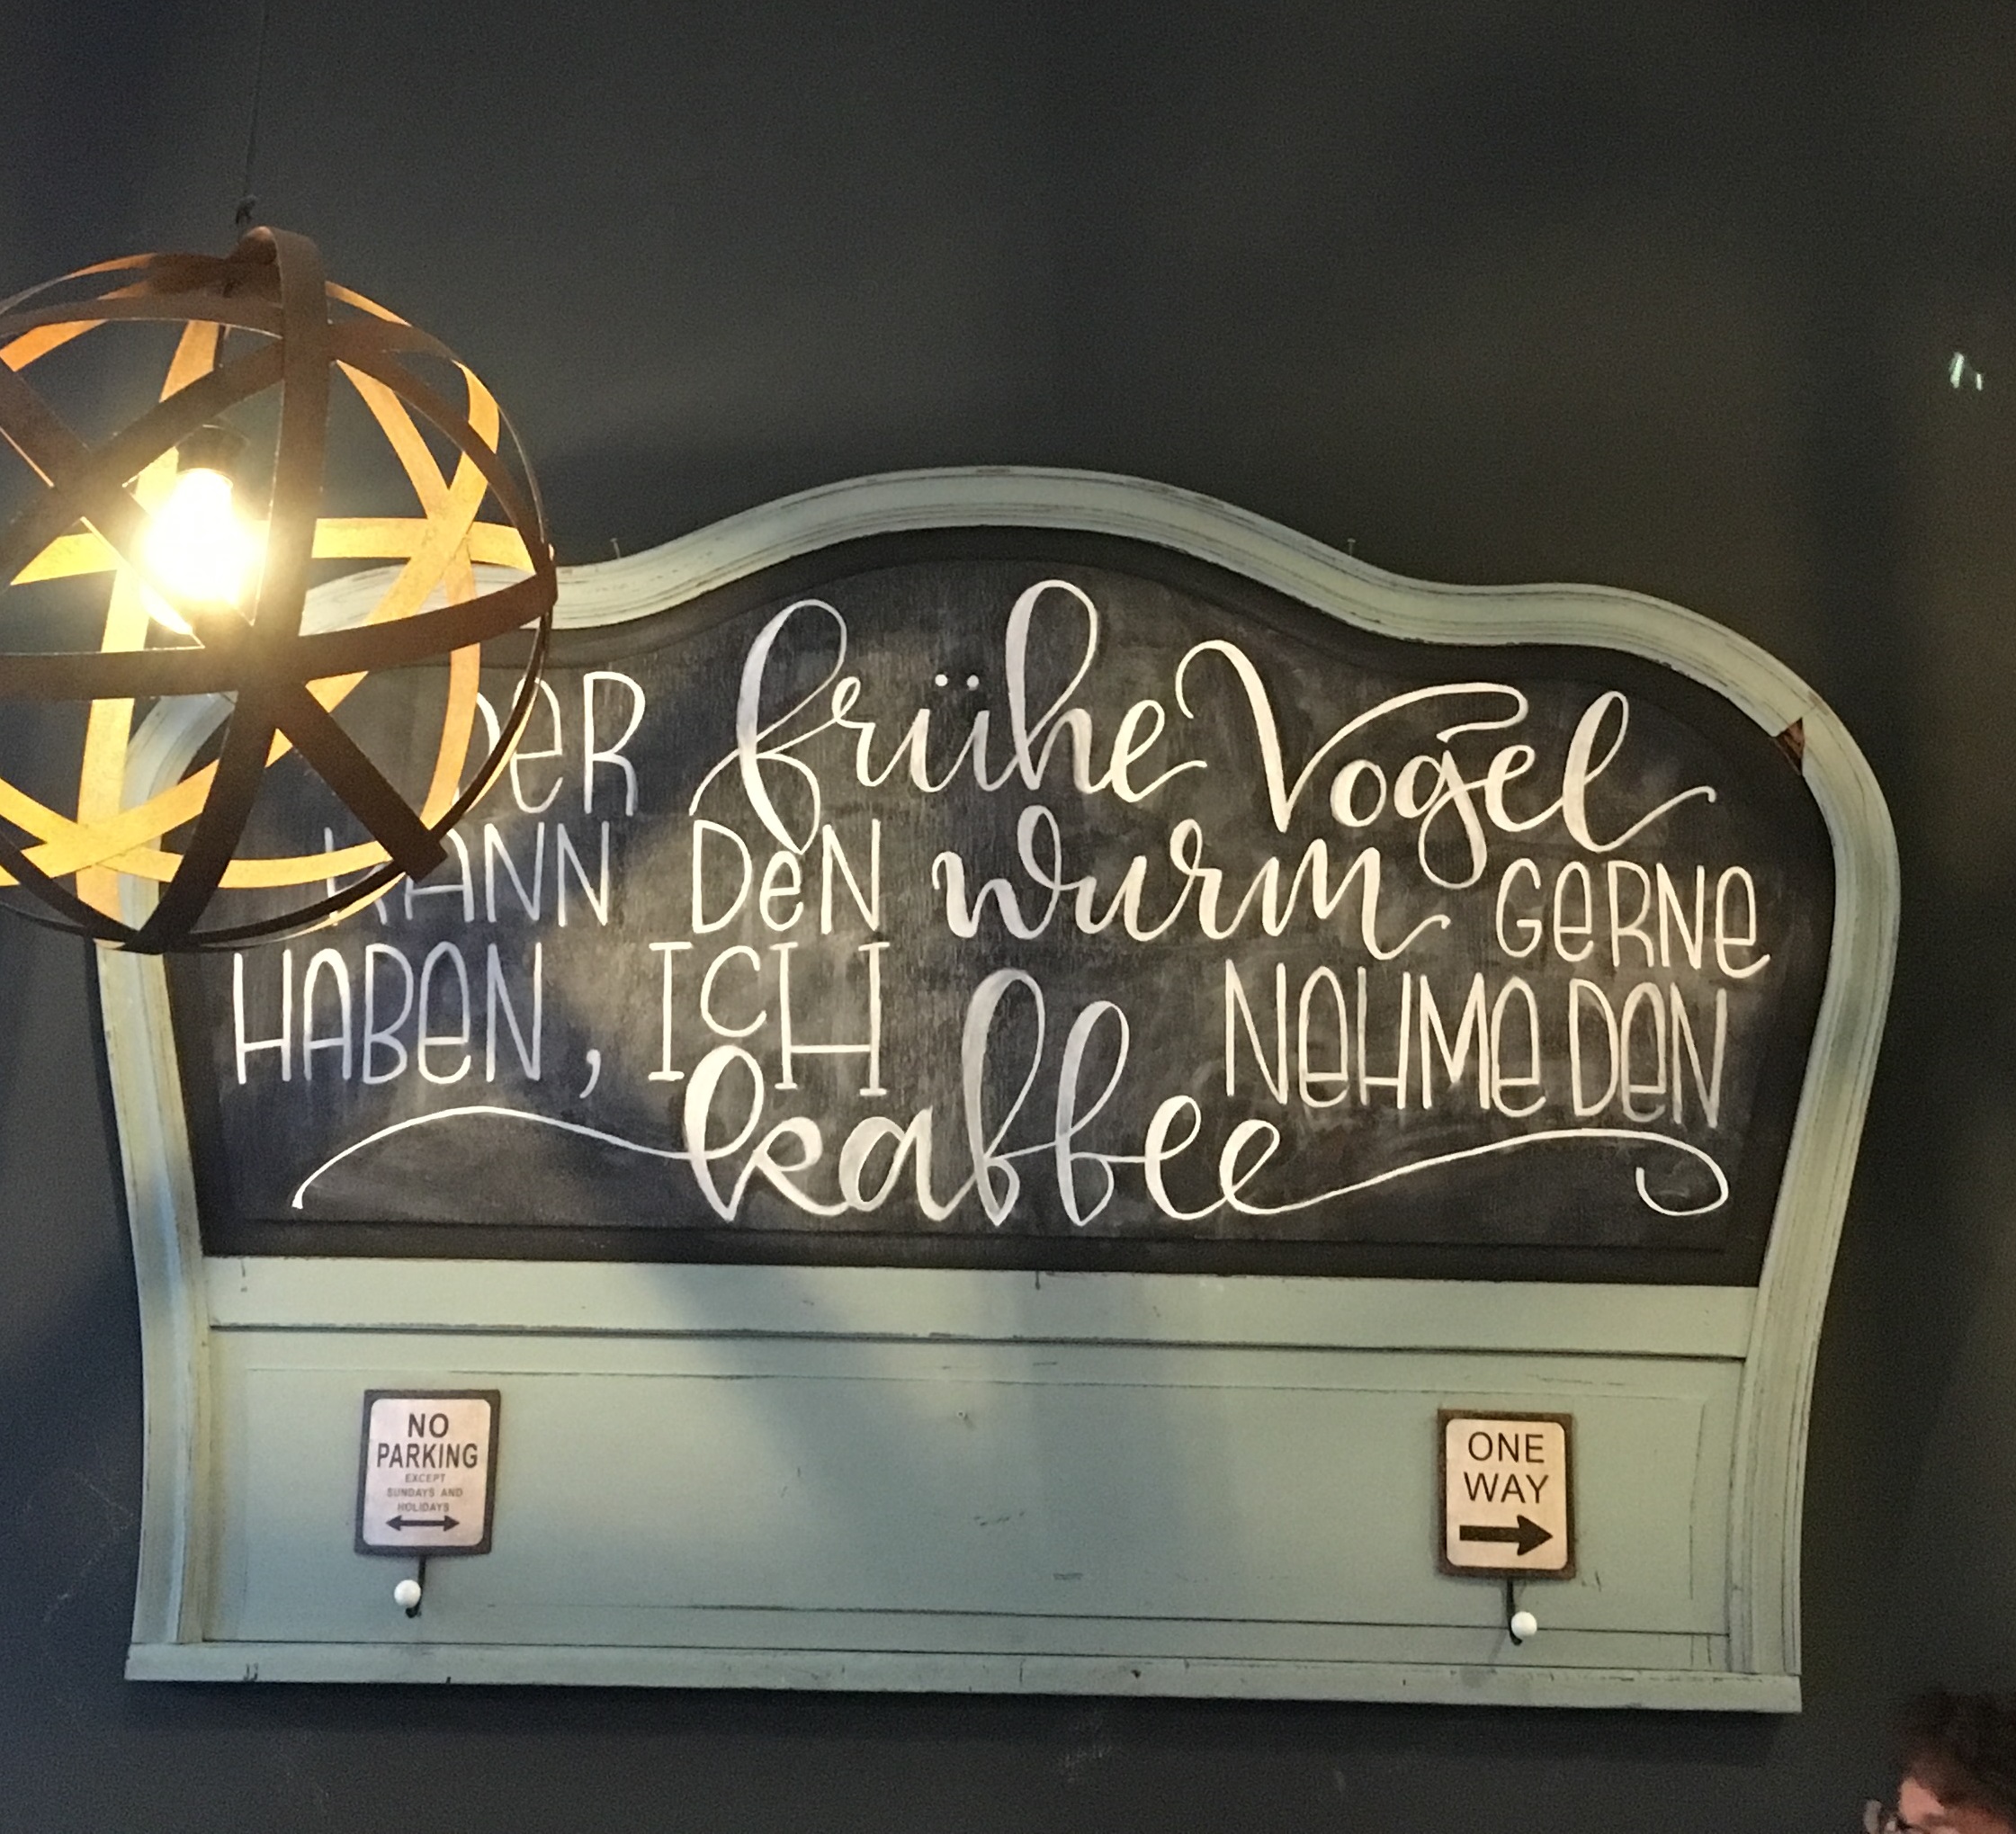 DeR frühe Vogel
KANN DeN wurm GeRNe
HABeN, ICH NeHMe DeN
kaffee
NO
PARKING
EXCEPT
SUNDAYS AND
HOLIDAYS
ONE
WAY